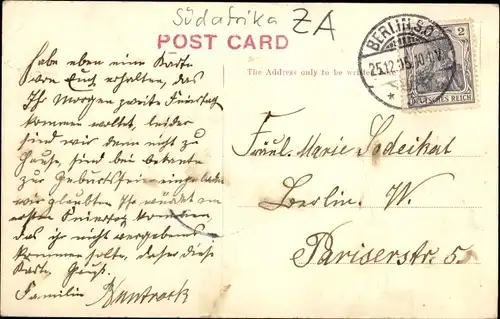 Südafrika ZA
POST CARD
The Address only to be
BERLIN S.O.
25.12.
2
DEUTSCHES REICH
habe eben eine Karte
von Euch erhalten, das
Ihr Morgen zweite Feiertag
kommen wolltet, leider
sind wir dann nicht zu
Hause, sind bei bekante
zur Geburtsfeier eingeladen
wir glaubten Ihr würdet am
ersten Feiertag kommen
das ihr nicht vergebens
kommen sollte, daher diese
Karte, Gruß.
Familie
Fräul. Marie Sodeikat
Berlin. W.
Pariserstr. 5.